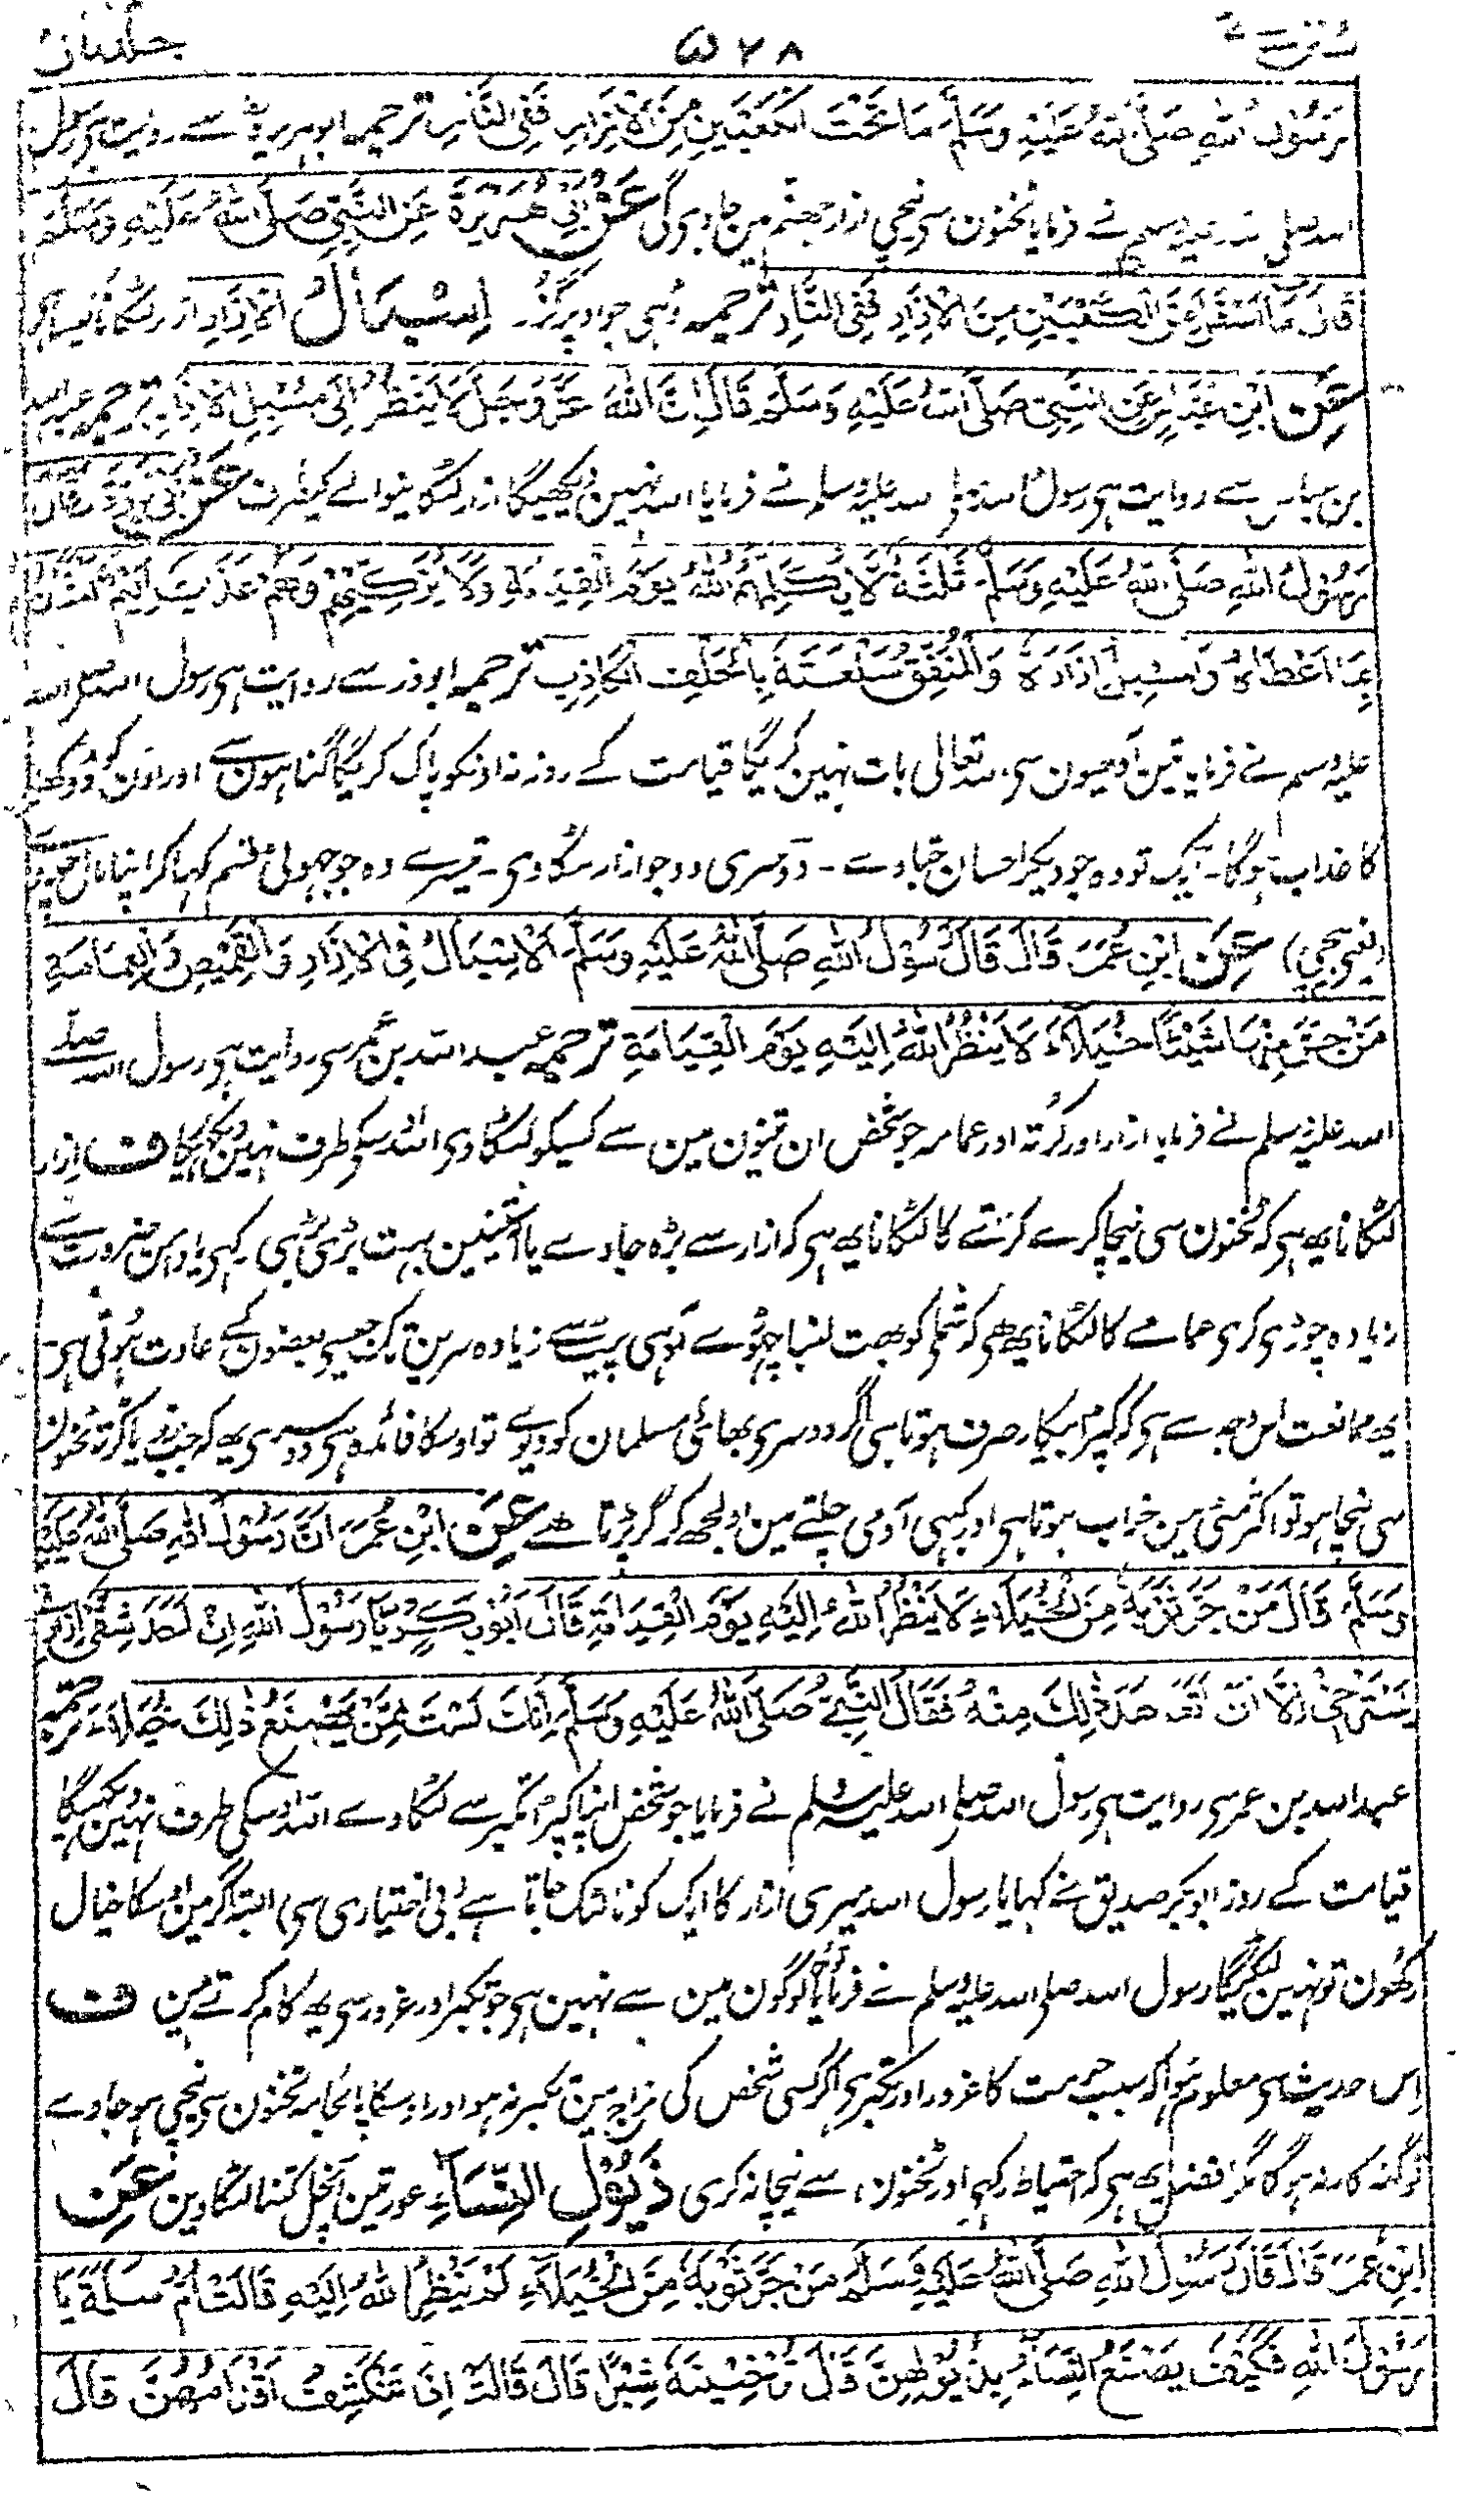 ۵۲۸
رَسُوْلُ اللّٰهِ صَلَّى اللّٰهُ عَلَيْهِ وَسَلَّمَ مَا تَحْتَ الْكَعْبَيْنِ مِنَ الْاِزَارِ فَفِي النَّارِ ترجمہ ابوہریرہ سے روایت ہی رسول
اللہ صلی اللہ علیہ وسلم نے فرمایا ٹخنون سی نیچی ازار جہنم مین جاوی گی عَنْ اَبِيْ هُرَيْرَةَ عَنِ النَّبِيِّ صَلَّى اللّٰهُ عَلَيْهِ وَسَلَّمَ
قَالَ مَا اَسْفَلَ مِنَ الْكَعْبَيْنِ مِنَ الْاِزَارِ فَفِي النَّارِ ترجمہ وہی جو اوپر گزرا اِسْبَالُ الْاِزَارِ ازار لٹکانا کیسا ہی
عَنِ ابْنِ عَبَّاسٍ عَنِ النَّبِيِّ صَلَّى اللّٰهُ عَلَيْهِ وَسَلَّمَ قَالَ اِنَّ اللّٰهَ عَزَّ وَجَلَّ لَا يَنْظُرُ اِلٰى مُسْبِلِ الْاِزَارِ ترجمہ عبداللہ
بن عباس سے روایت ہی رسول اللہ صلی اللہ علیہ وسلم نے فرمایا اللہ نہین دیکھیگا ازار لٹکانیوالے کیطرف عَنْ اَبِيْ ذَرٍّ قَالَ قَالَ
رَسُوْلُ اللّٰهِ صَلَّى اللّٰهُ عَلَيْهِ وَسَلَّمَ ثَلٰثَةٌ لَّا يُكَلِّمُهُمُ اللّٰهُ يَوْمَ الْقِيٰمَةِ وَلَا يُزَكِّيْهِمْ وَلَهُمْ عَذَابٌ اَلِيْمٌ الْمَنَّانُ
بِمَا اَعْطَاهُ وَالْمُسْبِلُ اِزَارَهُ وَالْمُنَفِّقُ سِلْعَتَهُ بِالْحَلِفِ الْكَاذِبِ ترجمہ ابوذر سے روایت ہی رسول اللہ صلی اللہ
علیہ وسلم نے فرمایا تین آدمیون سی اللہ تعالی بات نہین کریگا قیامت کے روز نہ اونکو پاک کریگا گناہون سے اور اون کو دکھ
کا عذاب ہوگا۔ ایک تو وہ جو دیکر احسان جتاوے۔ دوسری وہ جو ازار لٹکاوی۔ تیسرے وہ جو جھوٹی قسم کہا کر اپنا مال
عَنِ ابْنِ عُمَرَ قَالَ قَالَ رَسُوْلُ اللّٰهِ صَلَّى اللّٰهُ عَلَيْهِ وَسَلَّمَ الْاِسْبَالُ فِي الْاِزَارِ وَالْقَمِيْصِ وَالْعِمَامَةِ
مَنْ جَرَّ مِنْهَا شَيْئًا خُيَلَاءَ لَا يَنْظُرُ اللّٰهُ اِلَيْهِ يَوْمَ الْقِيَامَةِ ترجمہ عبداللہ بن عمر سی روایت ہی رسول اللہ صلے
اللہ علیہ وسلم نے فرمایا ازار اور کرتہ اور عمامہ جو شخص ان تینون مین سے کسیکو لٹکاوی اللہ اوسکی طرف نہین دیکھیگا ف ازار
لٹکانا یہ ہی کہ ٹخنون سی نیچا کرے کرتے کا لٹکانا یہ ہی کہ ازار سے بڑہ جاوے یا آستینین بہت بڑی بڑی رکہی یا دامن ضرورت سے
زیادہ چوڑی کری عمامے کا لٹکانا یہ ہی کہ شملہ کو بہت لنبا چھوڑے آدہی پیٹ سے زیادہ سرین تک جیسی بعضون کے عادت ہوتی ہی
یہ ممانعت اس وجہ سے ہی کہ کپڑا بیکار صرف ہوتا ہی اگر دوسری بھائی مسلمان کو دیوے تو اوسکا فائدہ ہی دوسری یہ کہ جب ازار یا کرتہ ٹخنون
سی نیچا ہو تو اکثر مٹی مین خراب ہوتا ہی اور کبہی آدمی چلتے مین اولجھ کر گر پڑتا ہے عَنِ ابْنِ عُمَرَ اَنَّ رَسُوْلَ اللّٰهِ صَلَّى اللّٰهُ عَلَيْهِ
وَسَلَّمَ قَالَ مَنْ جَرَّ ثَوْبَهُ مِنَ الْخُيَلَاءِ لَا يَنْظُرُ اللّٰهُ اِلَيْهِ يَوْمَ الْقِيَامَةِ قَالَ اَبُوْ بَكْرٍ يَا رَسُوْلَ اللّٰهِ اِنَّ اَحَدَ شِقَّيْ اِزَارِيْ
يَسْتَرْخِيْ اِلَّا اَنْ اَتَعَاهَدَ ذٰلِكَ مِنْهُ فَقَالَ النَّبِيُّ صَلَّى اللّٰهُ عَلَيْهِ وَسَلَّمَ اِنَّكَ لَسْتَ مِمَّنْ يَصْنَعُ ذٰلِكَ خُيَلَاءَ ترجمہ
عبداللہ بن عمر سی روایت ہی رسول اللہ صلی اللہ علیہ وسلم نے فرمایا جو شخص اپنا کپڑا تکبر سے لٹکاوے اللہ اوسکی طرف نہین دیکھیگا
قیامت کے روز ابوبکر صدیق نے کہا یا رسول اللہ میری ازار کا ایک کونا لٹک جاتا ہے بی اختیاری سی البتہ اگر مین اوسکا خیال
رکھون تو نہین لٹکیگا رسول اللہ صلی اللہ علیہ وسلم نے فرمایا تو اون لوگون مین سے نہین ہی جو تکبر اور غرور سی یہ کام کرتے ہین ف
اس حدیث سی معلوم ہوا کہ سبب حرمت کا غرور اور تکبر ہی اگر کسی شخص کی مزاج مین تکبر نہ ہو اور اوسکا پائجامہ ٹخنون سی نیچی ہو جاوے
تو گنہ کار نہ ہوگا مگر افضل یہ ہی کہ احتیاط رکہی اور ٹخنون سے نیچا نہ کری ذُيُوْلُ النِّسَاءِ عورتین آنچل کتنا لٹکاوین عَنِ
ابْنِ عُمَرَ قَالَ قَالَ رَسُوْلُ اللّٰهِ صَلَّى اللّٰهُ عَلَيْهِ وَسَلَّمَ مَنْ جَرَّ ثَوْبَهُ مِنَ الْخُيَلَاءِ لَمْ يَنْظُرِ اللّٰهُ اِلَيْهِ قَالَتْ اُمُّ سَلَمَةَ يَا
رَسُوْلَ اللّٰهِ فَكَيْفَ يَصْنَعُ النِّسَاءُ بِذُيُوْلِهِنَّ قَالَ تُرْخِيْنَهُ شِبْرًا قَالَ قَالَتْ اِذًا تَنْكَشِفُ اَقْدَامُهُنَّ قَالَ